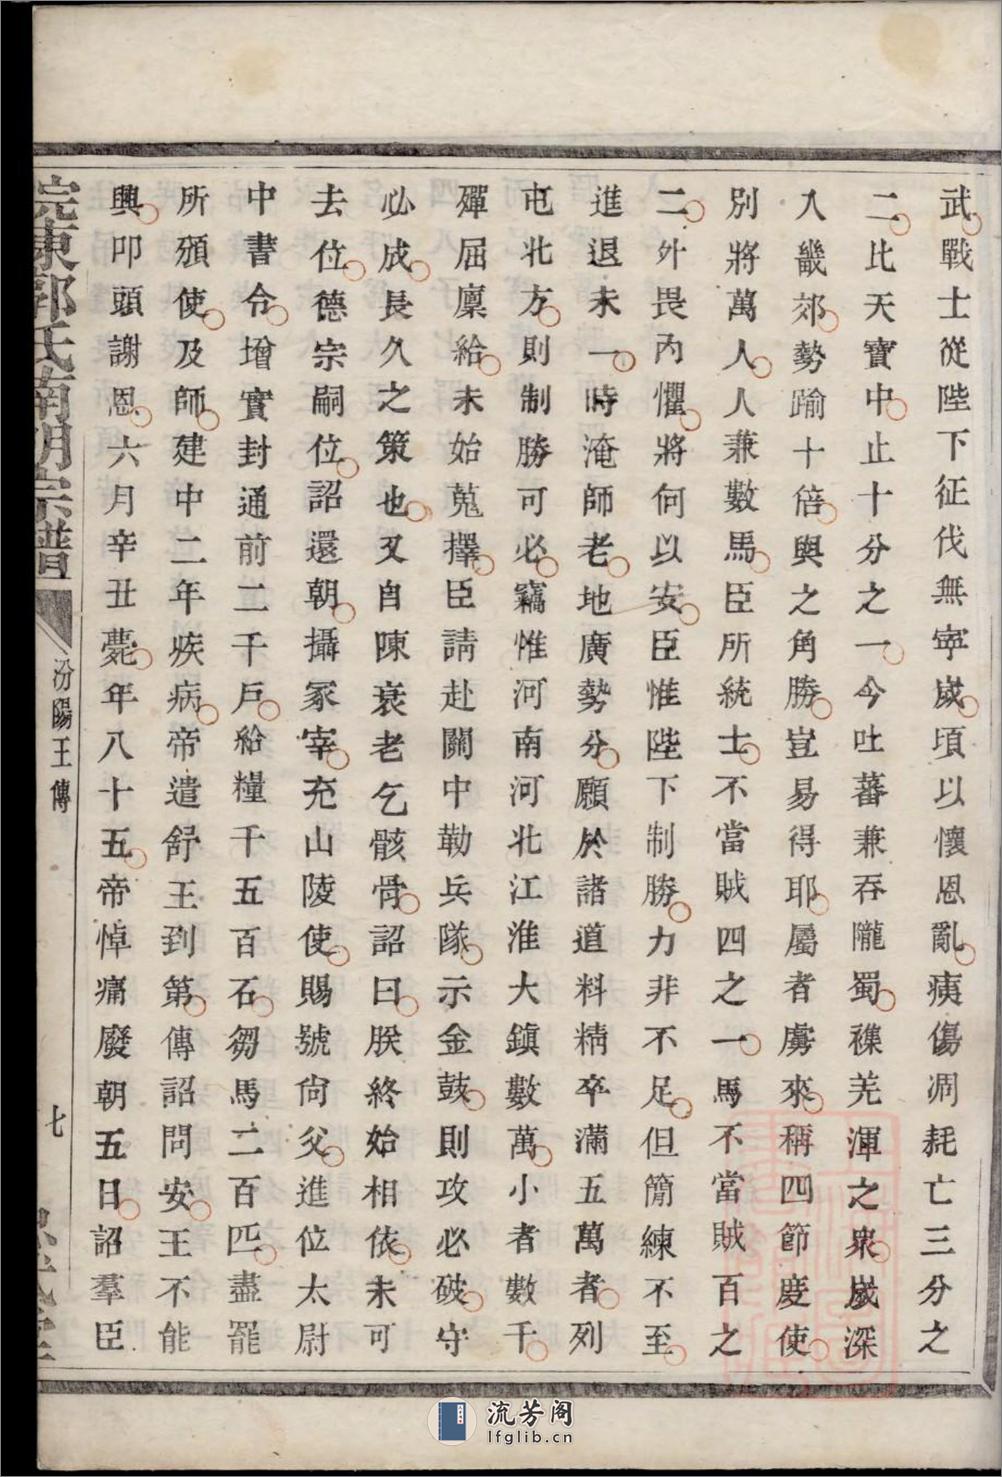 武戰士從陛下征伐無寧歲頃以懷恩亂痍傷凋耗亡三分之
二比天寶中止十分之一今吐蕃兼吞隴蜀襍羌渾之衆歲深
入畿郊勢踰十倍與之角勝豈易得耶屬者虜來稱四節度使
別將萬人人兼數馬臣所統士不當賊四之一馬不當賊百之
二外畏內懼將何以安臣惟陛下制勝力非不足但簡練不至
進退未一時淹師老地廣勢分願於諸道料精卒滿五萬者列
屯北方則制勝可必竊惟河南河北江淮大鎮數萬小者數千
殫屈廩給未始蒐擇臣請赴關中勒兵隊示金鼓則攻必破守
必成長久之策也又自陳衰老乞骸骨詔曰朕終始相依未可
去位德宗嗣位詔還朝攝冢宰充山陵使賜號尙父進位太尉
中書令增實封通前二千戶給糧千五百石芻馬二百匹盡罷
所頒使及師建中二年疾病帝遣舒王到第傳詔問安王不能
興叩頭謝恩六月辛丑薨年八十五帝悼痛廢朝五日詔羣臣
皖東郭氏南明宗譜
汾陽王傳
七
流芳阁
lfglib.cn